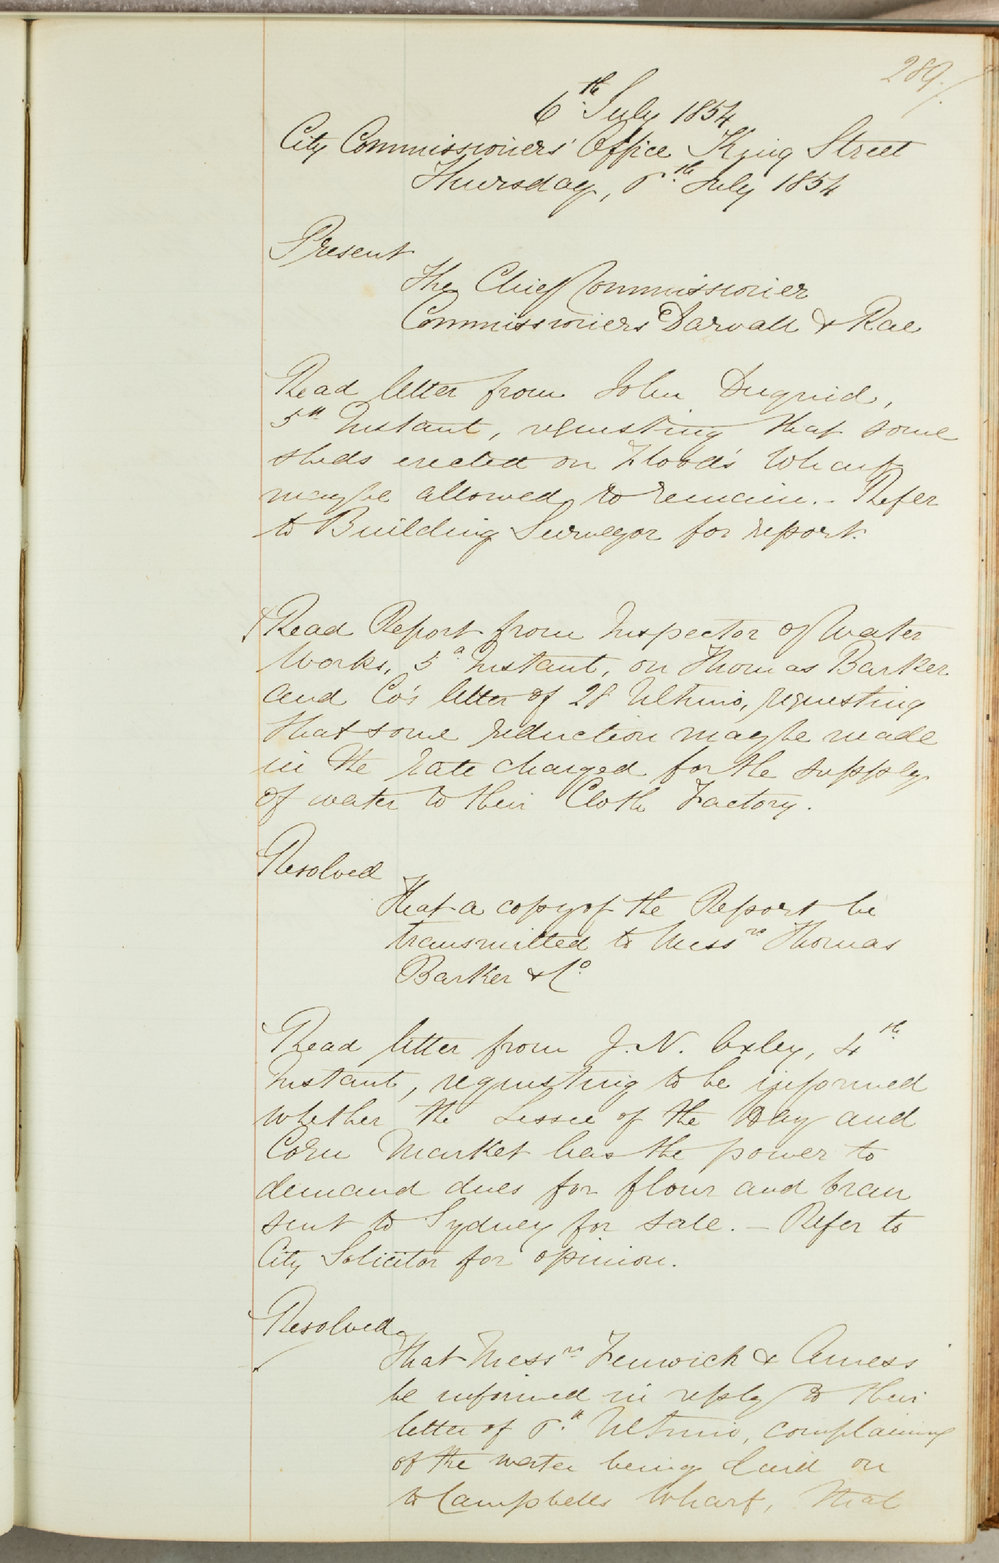 289.
6th July 1854
City Commissioners' Office King Street
Thursday, 6th July 1854
Present
The Chief Commissioner
Commissioners Darvall & Rae
Read letter from John Duguid,
5th Instant, requesting that some
sheds erected on Flood's Wharf
may be allowed to remain. - Refer
to Building Surveyor for report.
Read Report from Inspector of Water
Works, 5th Instant, on Thomas Barker
and Co's letter of 28 Ultimo, requesting
that some reduction may be made
in the rate charged for the supply
of water to their Cloth Factory.
Resolved
That a copy of the Report be
transmitted to Messrs Thomas
Barker & Co.
Read letter from J. N. Oxley, 4th
Instant, requesting to be informed
whether the Lessee of the Hay and
Corn Market has the power to
demand dues for flour and bran
sent to Sydney for sale. - Refer to
City Solicitor for opinion.
Resolved
That Messrs Fenwick &
be informed in reply to their
letter of 6th Ultimo, complaining
of the water being laid on
to Campbells Wharf, that